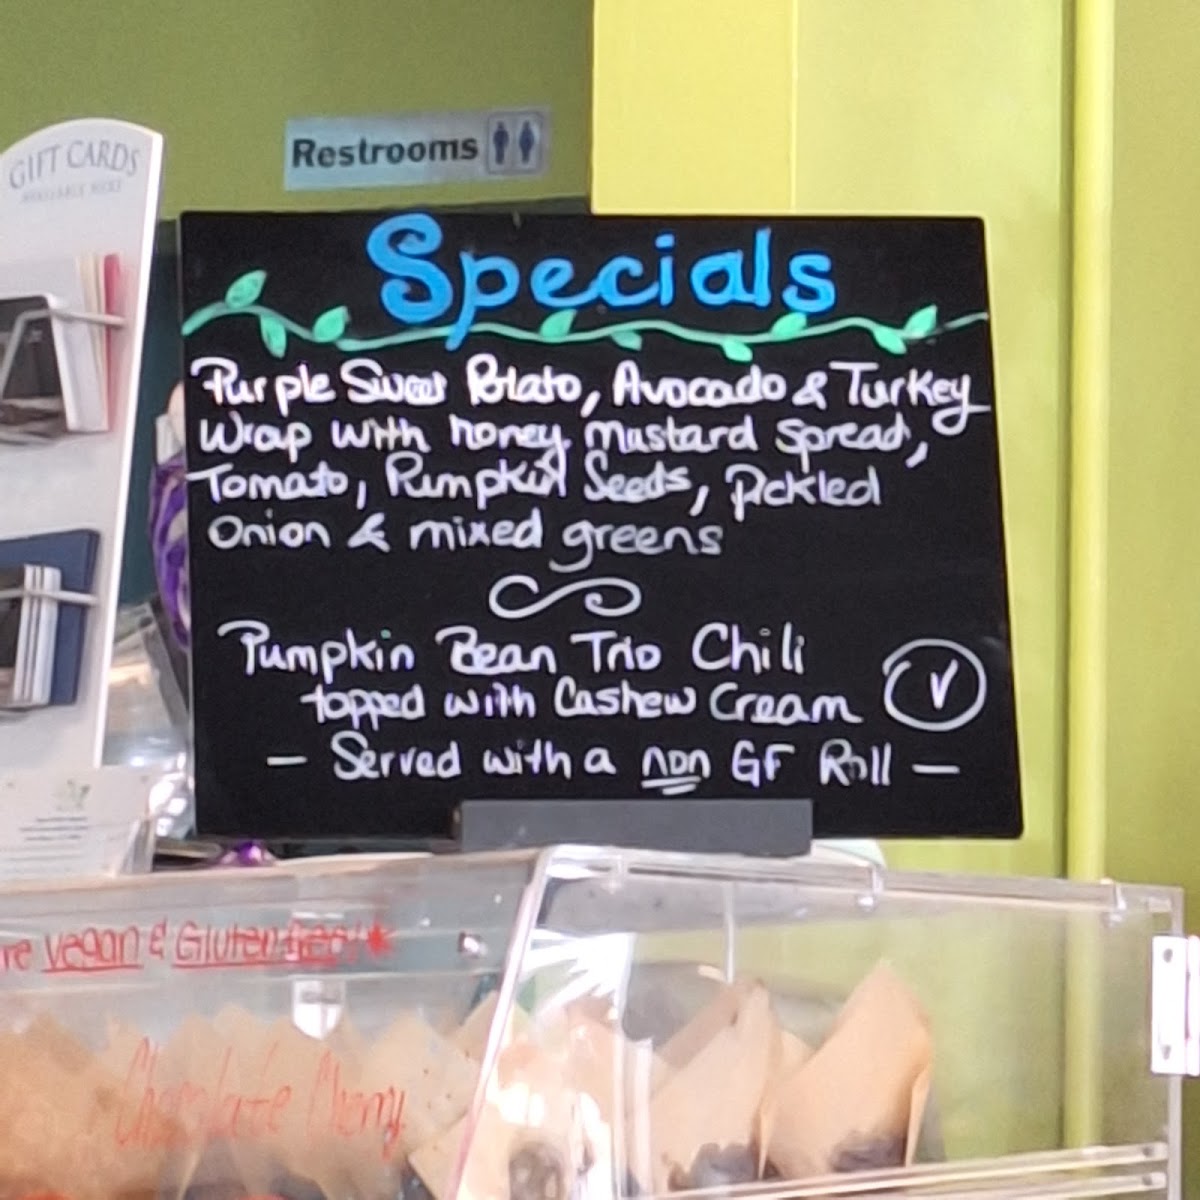 GIFT CARDS
AVAILABLE HERE
Restrooms
Specials
Purple Sweet Potato, Avocado & Turkey
Wrap with honey mustard spread,
Tomato, Pumpkin Seeds, Pickled
Onion & mixed greens
Pumpkin Bean Trio Chili
topped with Cashew Cream V
— Served with a non GF Roll —
re vegan & Gluten free! *
Chocolate Cherry